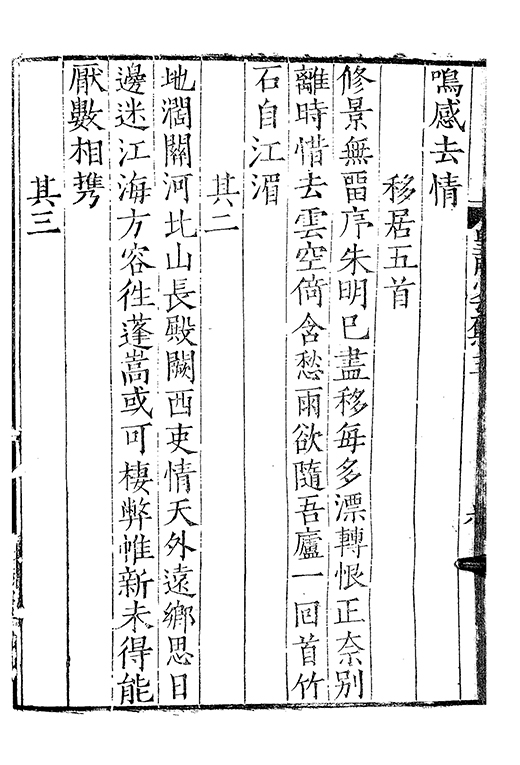 鳴感去情
移居五首
修景無畱序朱明已盡移每多漂轉恨正柰別
離時惜去雲空倚含愁雨欲隨吾廬一回首竹
石自江湄
其二
地濶關河北山長殿闕西吏情天外遠鄉思日
邊迷江海方容徃蓬嵩或可棲弊帷新未得能
厭數相携
其三